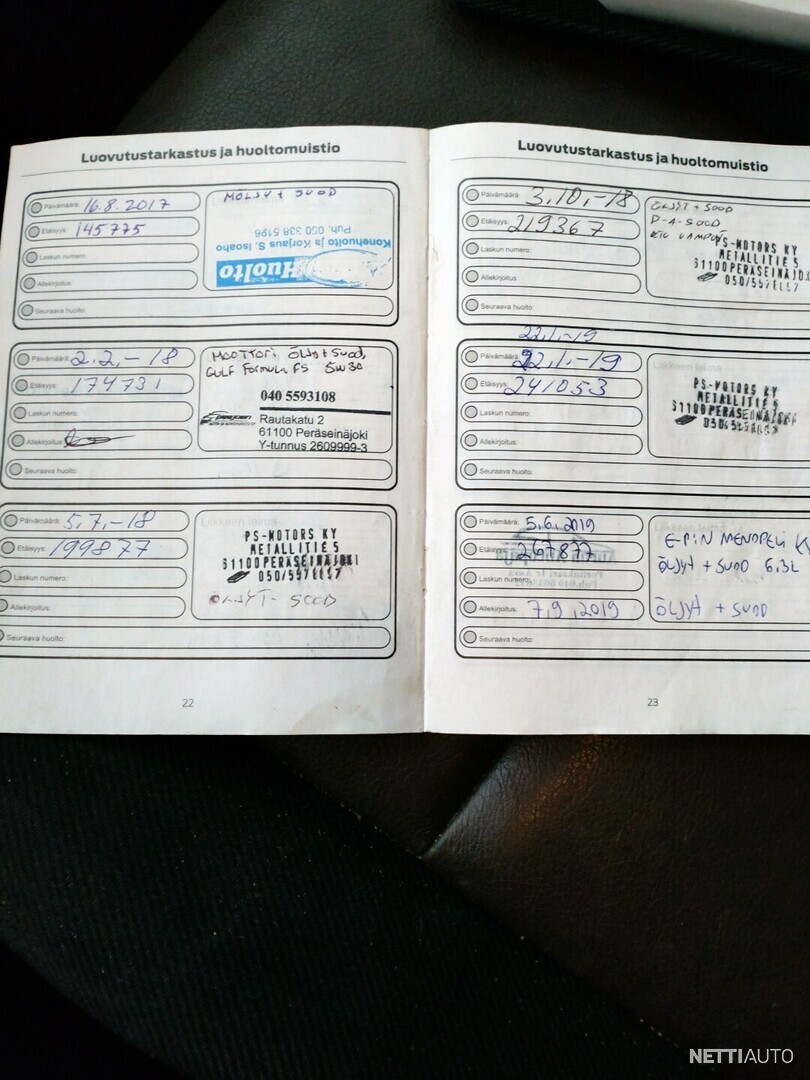 Luovutustarkastus ja huoltomuistio
Päivämäärä: 16.8.2017
Etäisyys: 145775
Laskun numero:
Allekirjoitus:
Seuraava huolto:
MÖLJYT SUOD
Huolto
Konehuolto ja Korjaus S. Isoaho
Puh. 050 338 5196
Päivämäärä: 2.2,-18
Etäisyys: 174731
Laskun numero:
Allekirjoitus:
Seuraava huolto:
MOOTTORI ÖLJYT+SUOD,
GULF FORMULA FS 5W30
040 5593108
Rautakatu 2
61100 Peräseinäjoki
Y-tunnus 2609999-3
Päivämäärä: 5,7,-18
Etäisyys: 199877
Laskun numero:
Allekirjoitus:
Seuraava huolto:
Liikkeen leima
PS-MOTORS KY
METALLITIE 5
61100PERÄSEINÄJOKI
ÖLJYT- SUOD
22
Luovutustarkastus ja huoltomuistio
Päivämäärä: 3,10,-18
Etäisyys: 219367
Laskun numero:
Allekirjoitus:
Seuraava huolto:
ÖLJYT+SUOD
PS-MOTORS KY
METALLITIE 5
61100PERÄSEINÄJO
22,1,-19
Päivämäärä: 22,1,-19
Etäisyys: 241053
Laskun numero:
Allekirjoitus:
Seuraava huolto:
Liikkeen leima
PS-MOTORS KY
METALLITIE 5
61100PERÄSEINÄJOKI
Päivämäärä: 5,6,2019
Etäisyys: 267877
Laskun numero:
Allekirjoitus: 7,9,2019
Seuraava huolto:
Liikkeen leima
E-P:N MENOPELI
ÖLJYT + SUOD 6.3L
ÖLJYT + SUOD
23
NETTIAUTO